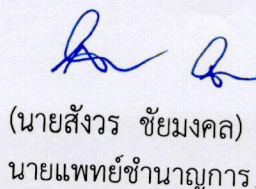 (นายสังวร ชัยมงคล)
นายแพทย์ชำนาญการ